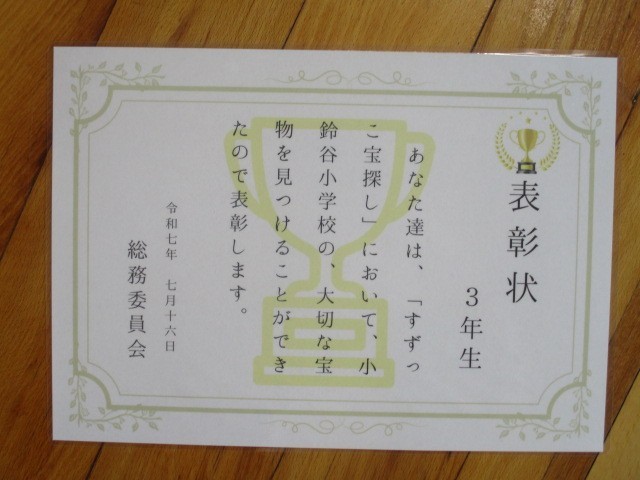 表彰状
３年生
あなた達は、「すずっ
こ宝探し」において、小
鈴谷小学校の、大切な宝
物を見つけることができ
たので表彰します。
令和七年　七月十六日
総務委員会